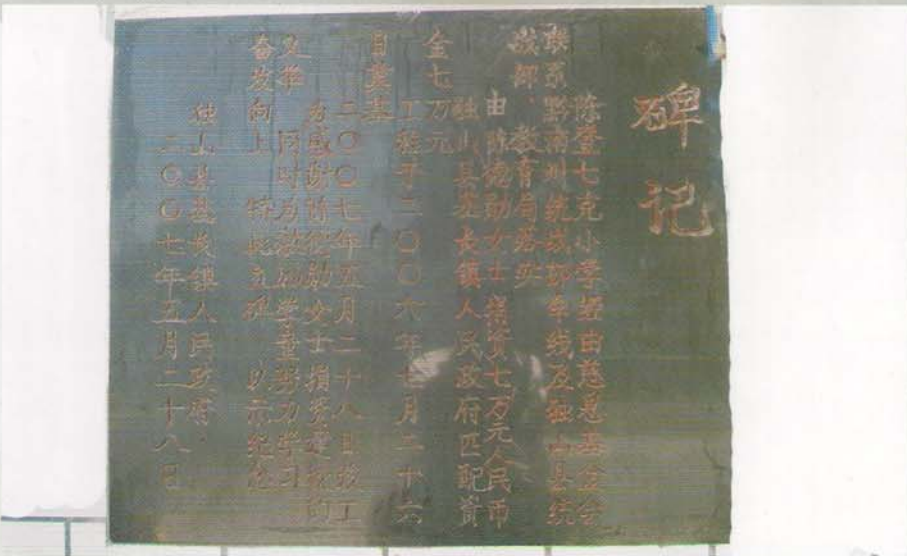 碑记
陈登七克小学经由慈恩基金会
联系黔南州统战部牵线及独山县统
战部、教育局落实
由陈德勤女士捐资七万元人民币
独山县基长镇人民政府匹配资
金七万元
工程于二〇〇六年七月二十六
日奠基
二〇〇七年五月二十八日竣工
为感谢陈德勤女士捐资建校的
义举 同时为激励学童努力学习
奋发向上 特此立碑 以示纪念
独山县基长镇人民政府
二〇〇七年五月二十八日